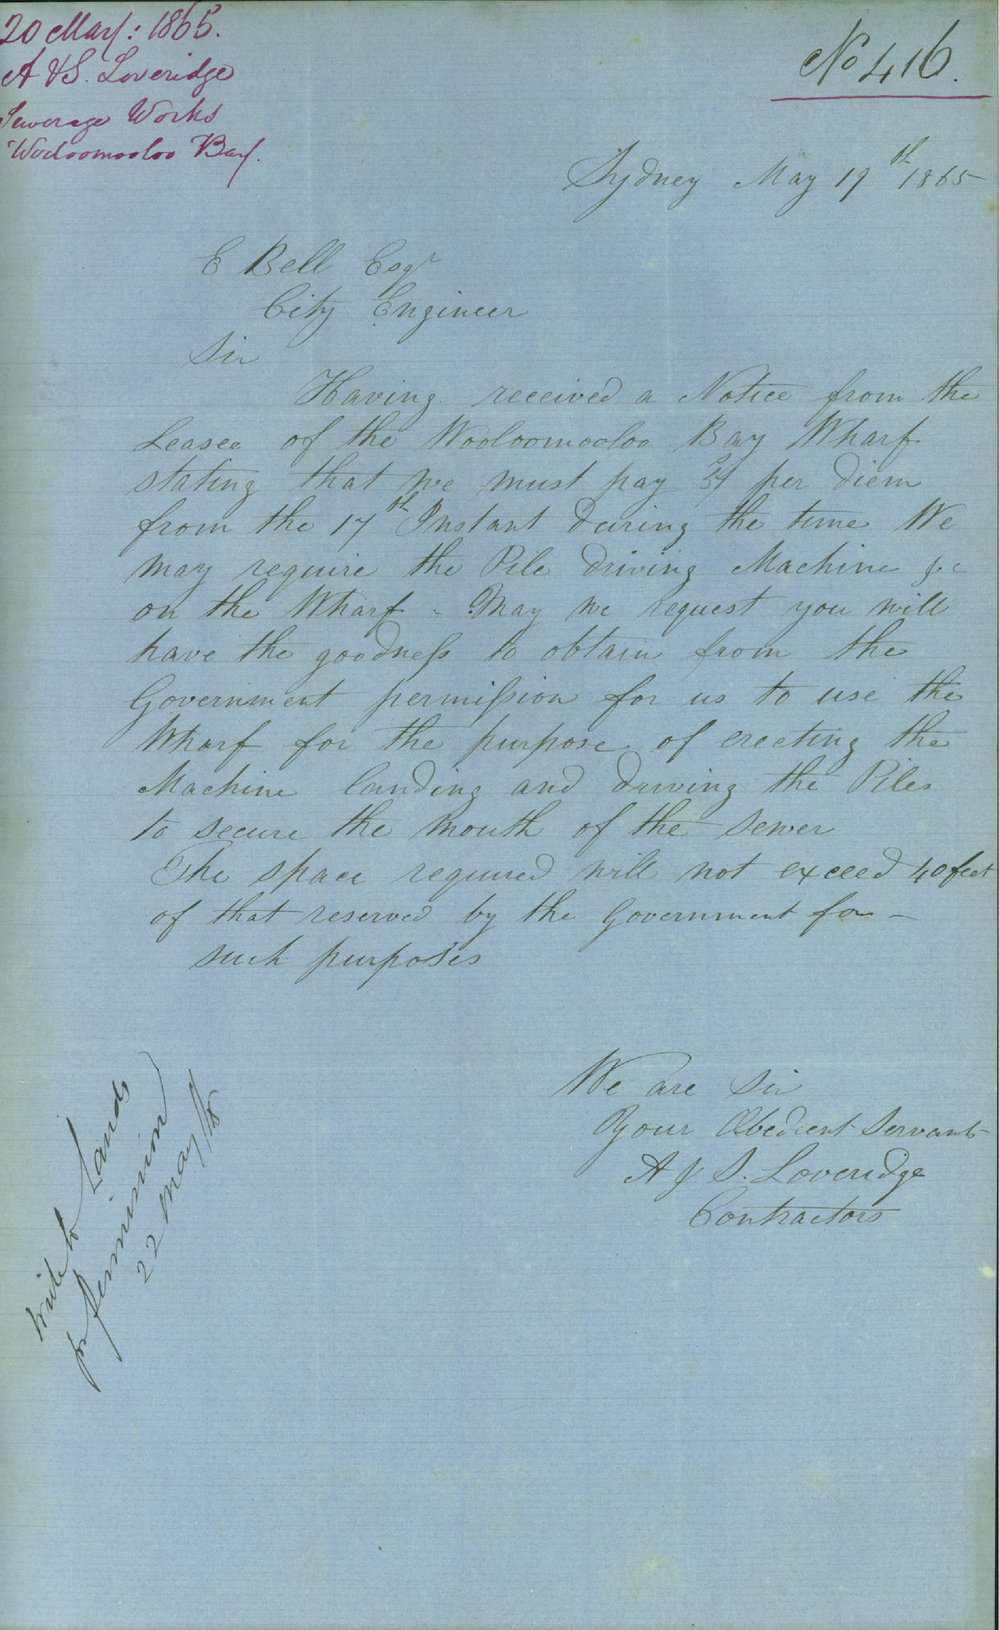 20 May: 1865.
A & S. Loveridge
Sewerage Works
Wooloomooloo Bay.
No 416.
Sydney May 19th 1865
E Bell Esqr
City Engineer
Sir
Having received a Notice from the
Leasee of the Wooloomooloo Bay Wharf
stating that we must pay per diem
from the 17th Instant during the time We
may require the Pile driving Machine &c
on the Wharf - May we request you will
have the goodness to obtain from the
Government permission for us to use the
Wharf for the purpose of erecting the
Machine landing and driving the Piles
to secure the mouth of the sewer
The space required will not exceed 40 feet
of that reserved by the Government for -
such purposes
We are Sir
Your Obedient Servants
A & S. Loveridge
Contractors
Write to Lands
for permission
22 May/65